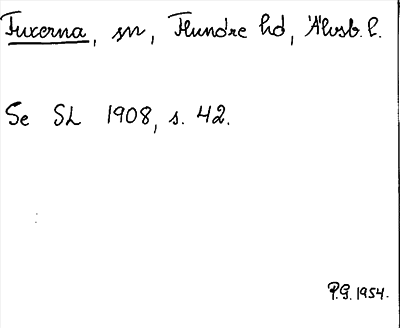 Tuxerna, sn, Flundre hd, Älvsb. l.
Se SL 1908, s. 42.
P.G. 1954.